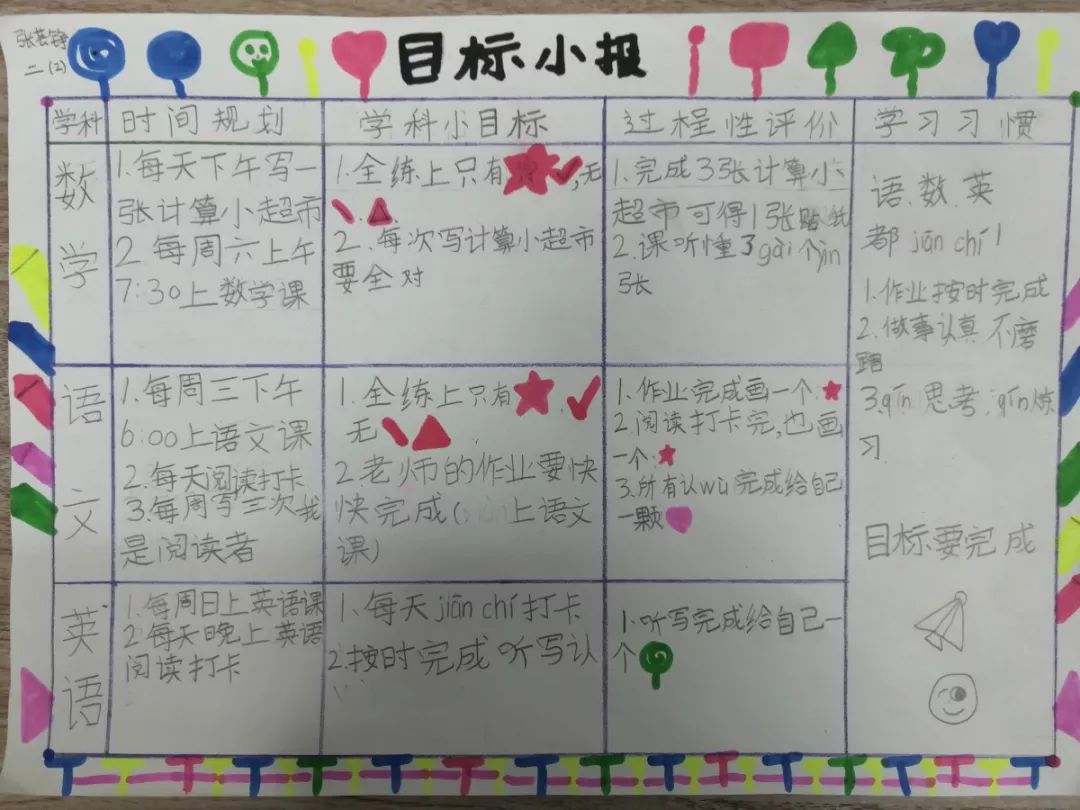 二(2)
目标小报
学科 时间规划 学科小目标 过程性评价 学习习惯
数学
1.每天下午写一
张计算小超市
2.每周六上午
7:30上数学课
1.全练上只有★✓,无
\、▲.
2.每次写计算小超市
要全对
1.完成3张计算小
超市可得1张贴纸
2.课听懂了gài个yìn
张
语文
1.每周三下午
6:00上语文课
2.每天阅读打卡
3.每周写三次我
是阅读者
1.全练上只有★.✓
无\▲
2.老师的作业要快
快完成(上语文
课)
1.作业完成画一个★
2.阅读打卡完,也画
一个★
3.所有认wù完成给自己
一颗♥
英语
1.每周日上英语课
2.每天晚上英语
阅读打卡
1.每天jiān chí打卡
2.按时完成听写认
1.听写完成给自己一
个
语.数.英
都jiān chí
1.作业按时完成
2.做事认真不磨
蹭
3.qín思考.qín练
习
目标要完成